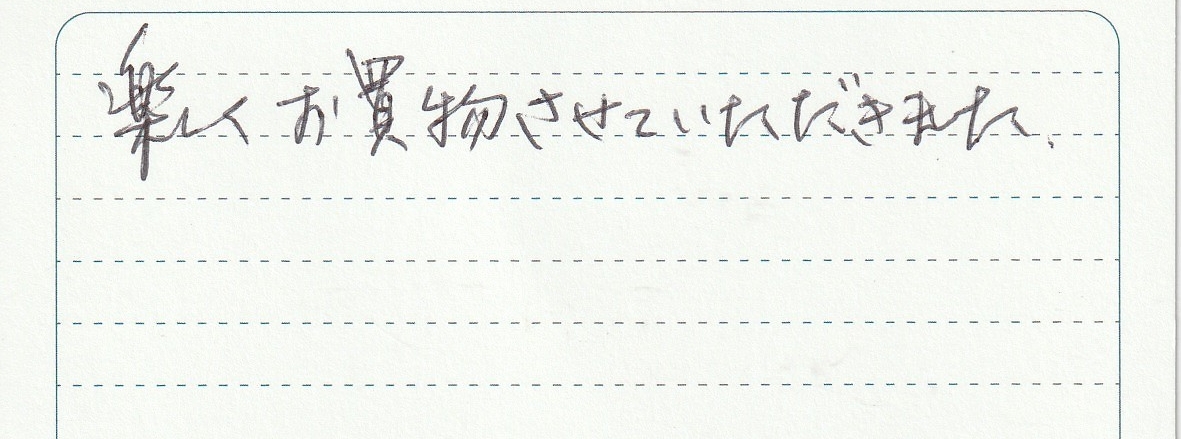 楽しくお買物させていただきました.